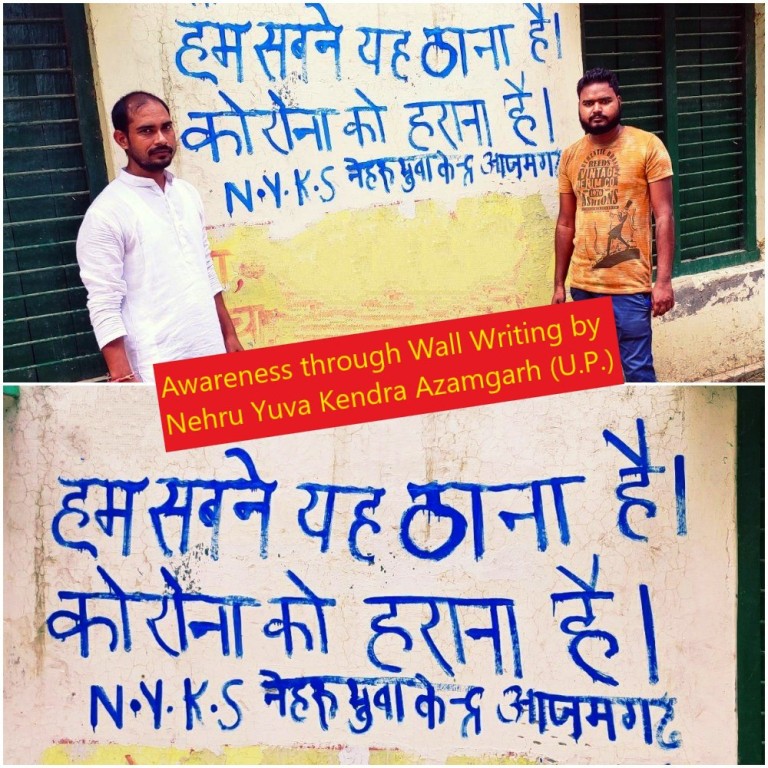 हम सबने यह ठाना है।
कोरोना को हराना है।
N.Y.K.S नेहरू युवा केन्द्र आजमगढ़
Awareness through Wall Writing by
Nehru Yuva Kendra Azamgarh (U.P.)
हम सबने यह ठाना है।
कोरोना को हराना है।
N.Y.K.S नेहरू युवा केन्द्र आजमगढ़